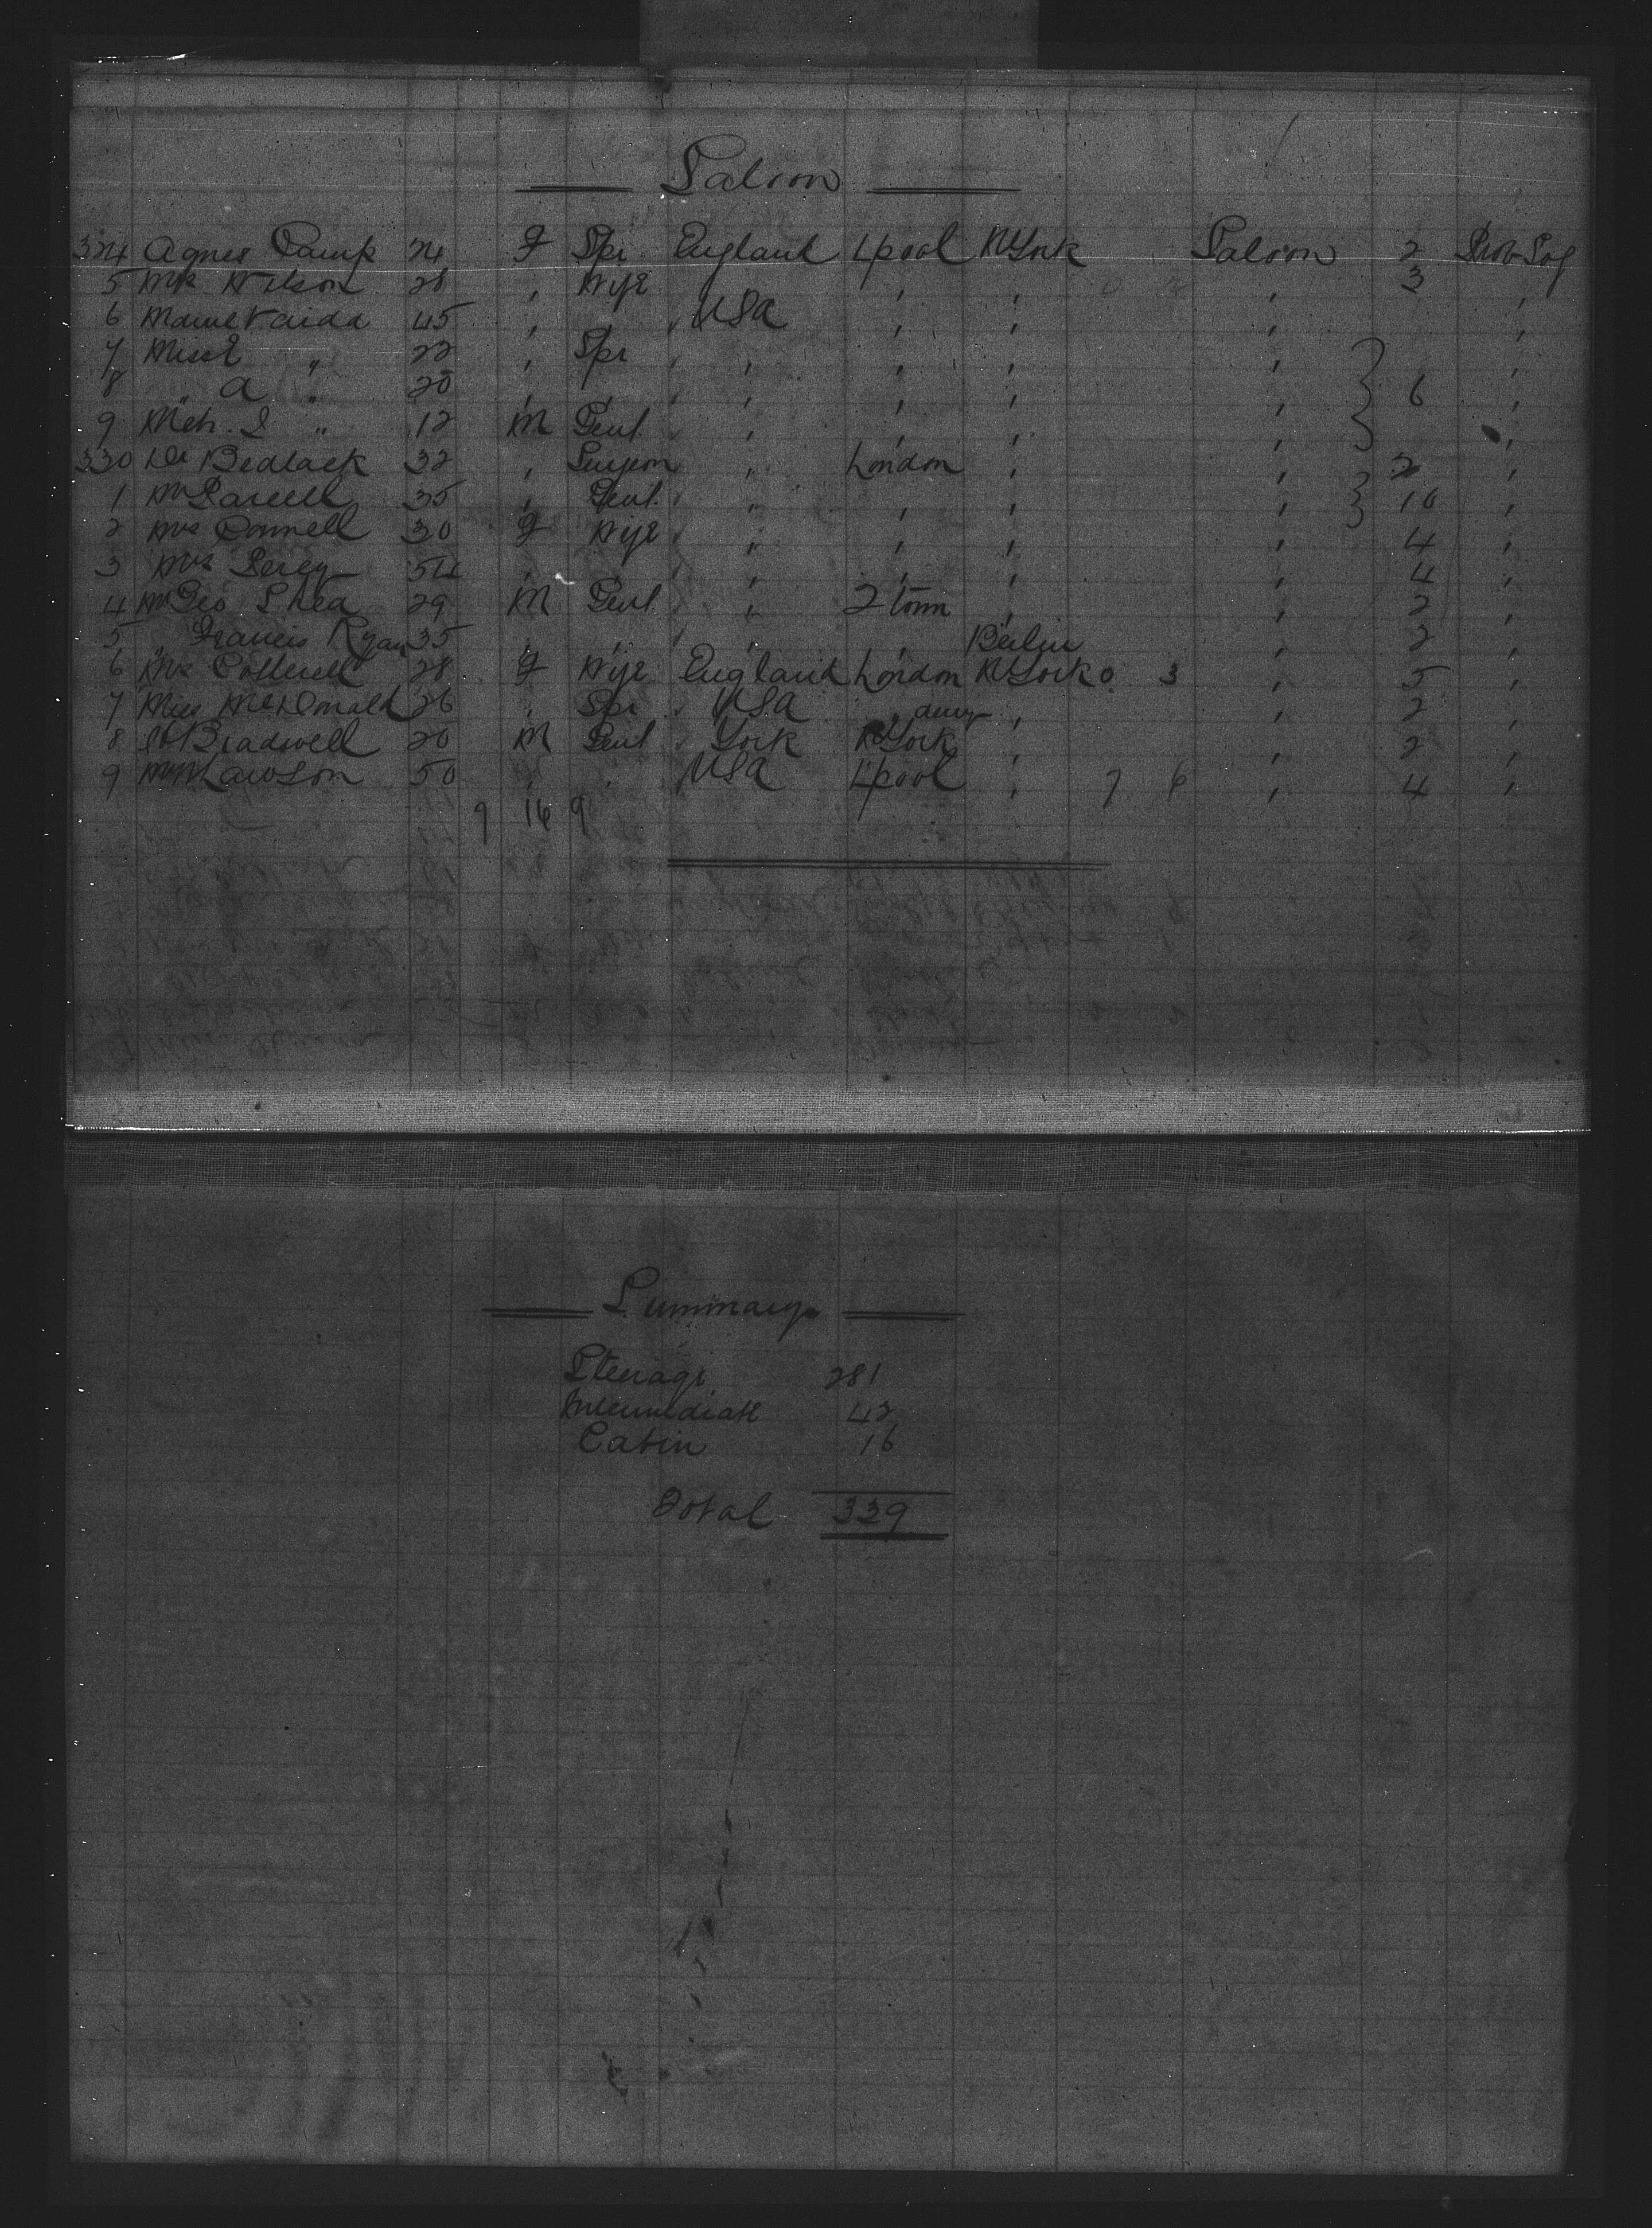 Saloon
324 Agnes Camp 24 F Spr England Lpool NYork Saloon 2 Prob Soj
5 Mrs Wilson 28 " Wife " " " 3 "
6 Mame Vaida 45 " " " USA " " " "
7 Miss E " 22 " Spr " " " " " "
8 " A " 20 " " " " " " " 6 "
9 Mstr. I " 12 M Gent " " " " " "
330 Dr Bedlack 32 " Surgeon " London " " 2 "
1 Mr 35 " Gent. " " " " " 10 "
2 Mrs Connell 30 F Wife " " " " " 4 "
3 Mrs Percy 54 " " " " " " " 4 "
4 Mr Geo Shea 29 M Gent " " " " 2 "
5 " Francis Ryan 35 " " " " " Berlin " 2 "
6 Mrs Cotterell 28 F Wife England London NYork 0 3 " 5 "
7 Miss McDonald 26 " Spr " USA " " " 2 "
8 Bradwell 20 M Gent " York NYork " " 2 "
9 Mr Lawson 50 " " USA Lpool " 7 6 " 4 "
9 16 9
Summary
Steerage 281
Intermediate 42
Cabin 16
Total 339